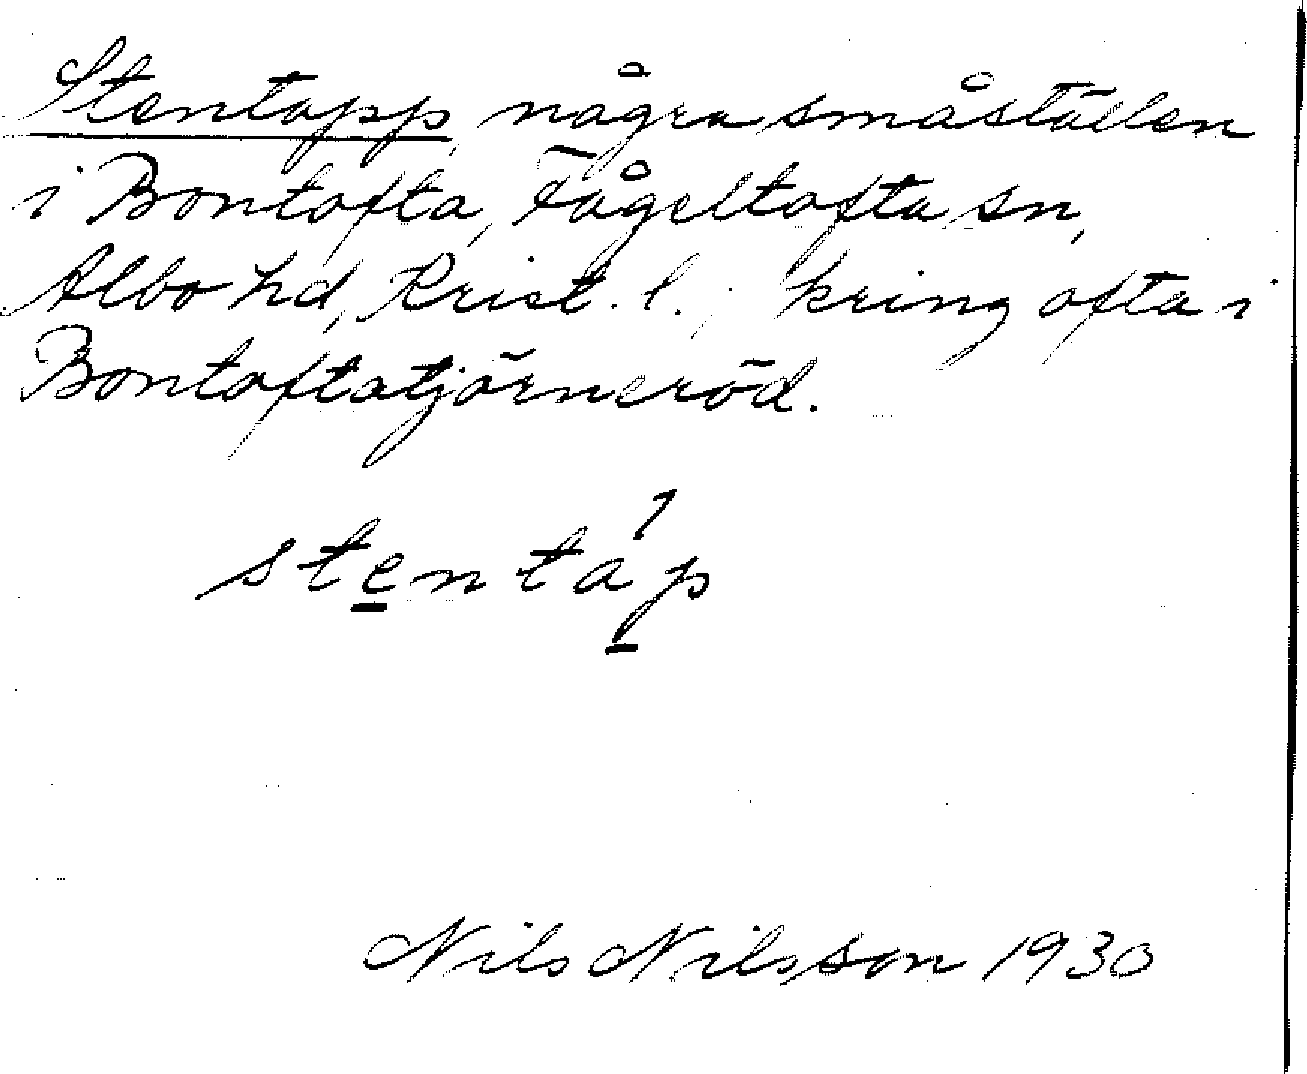 Stentapp, några småställen
i Bontofta, Fågeltofta sn,
Albo hd, Krist. l.; kring ofta i
Bontoftatjörneröd.
stentáp
Nils Nilsson 1930